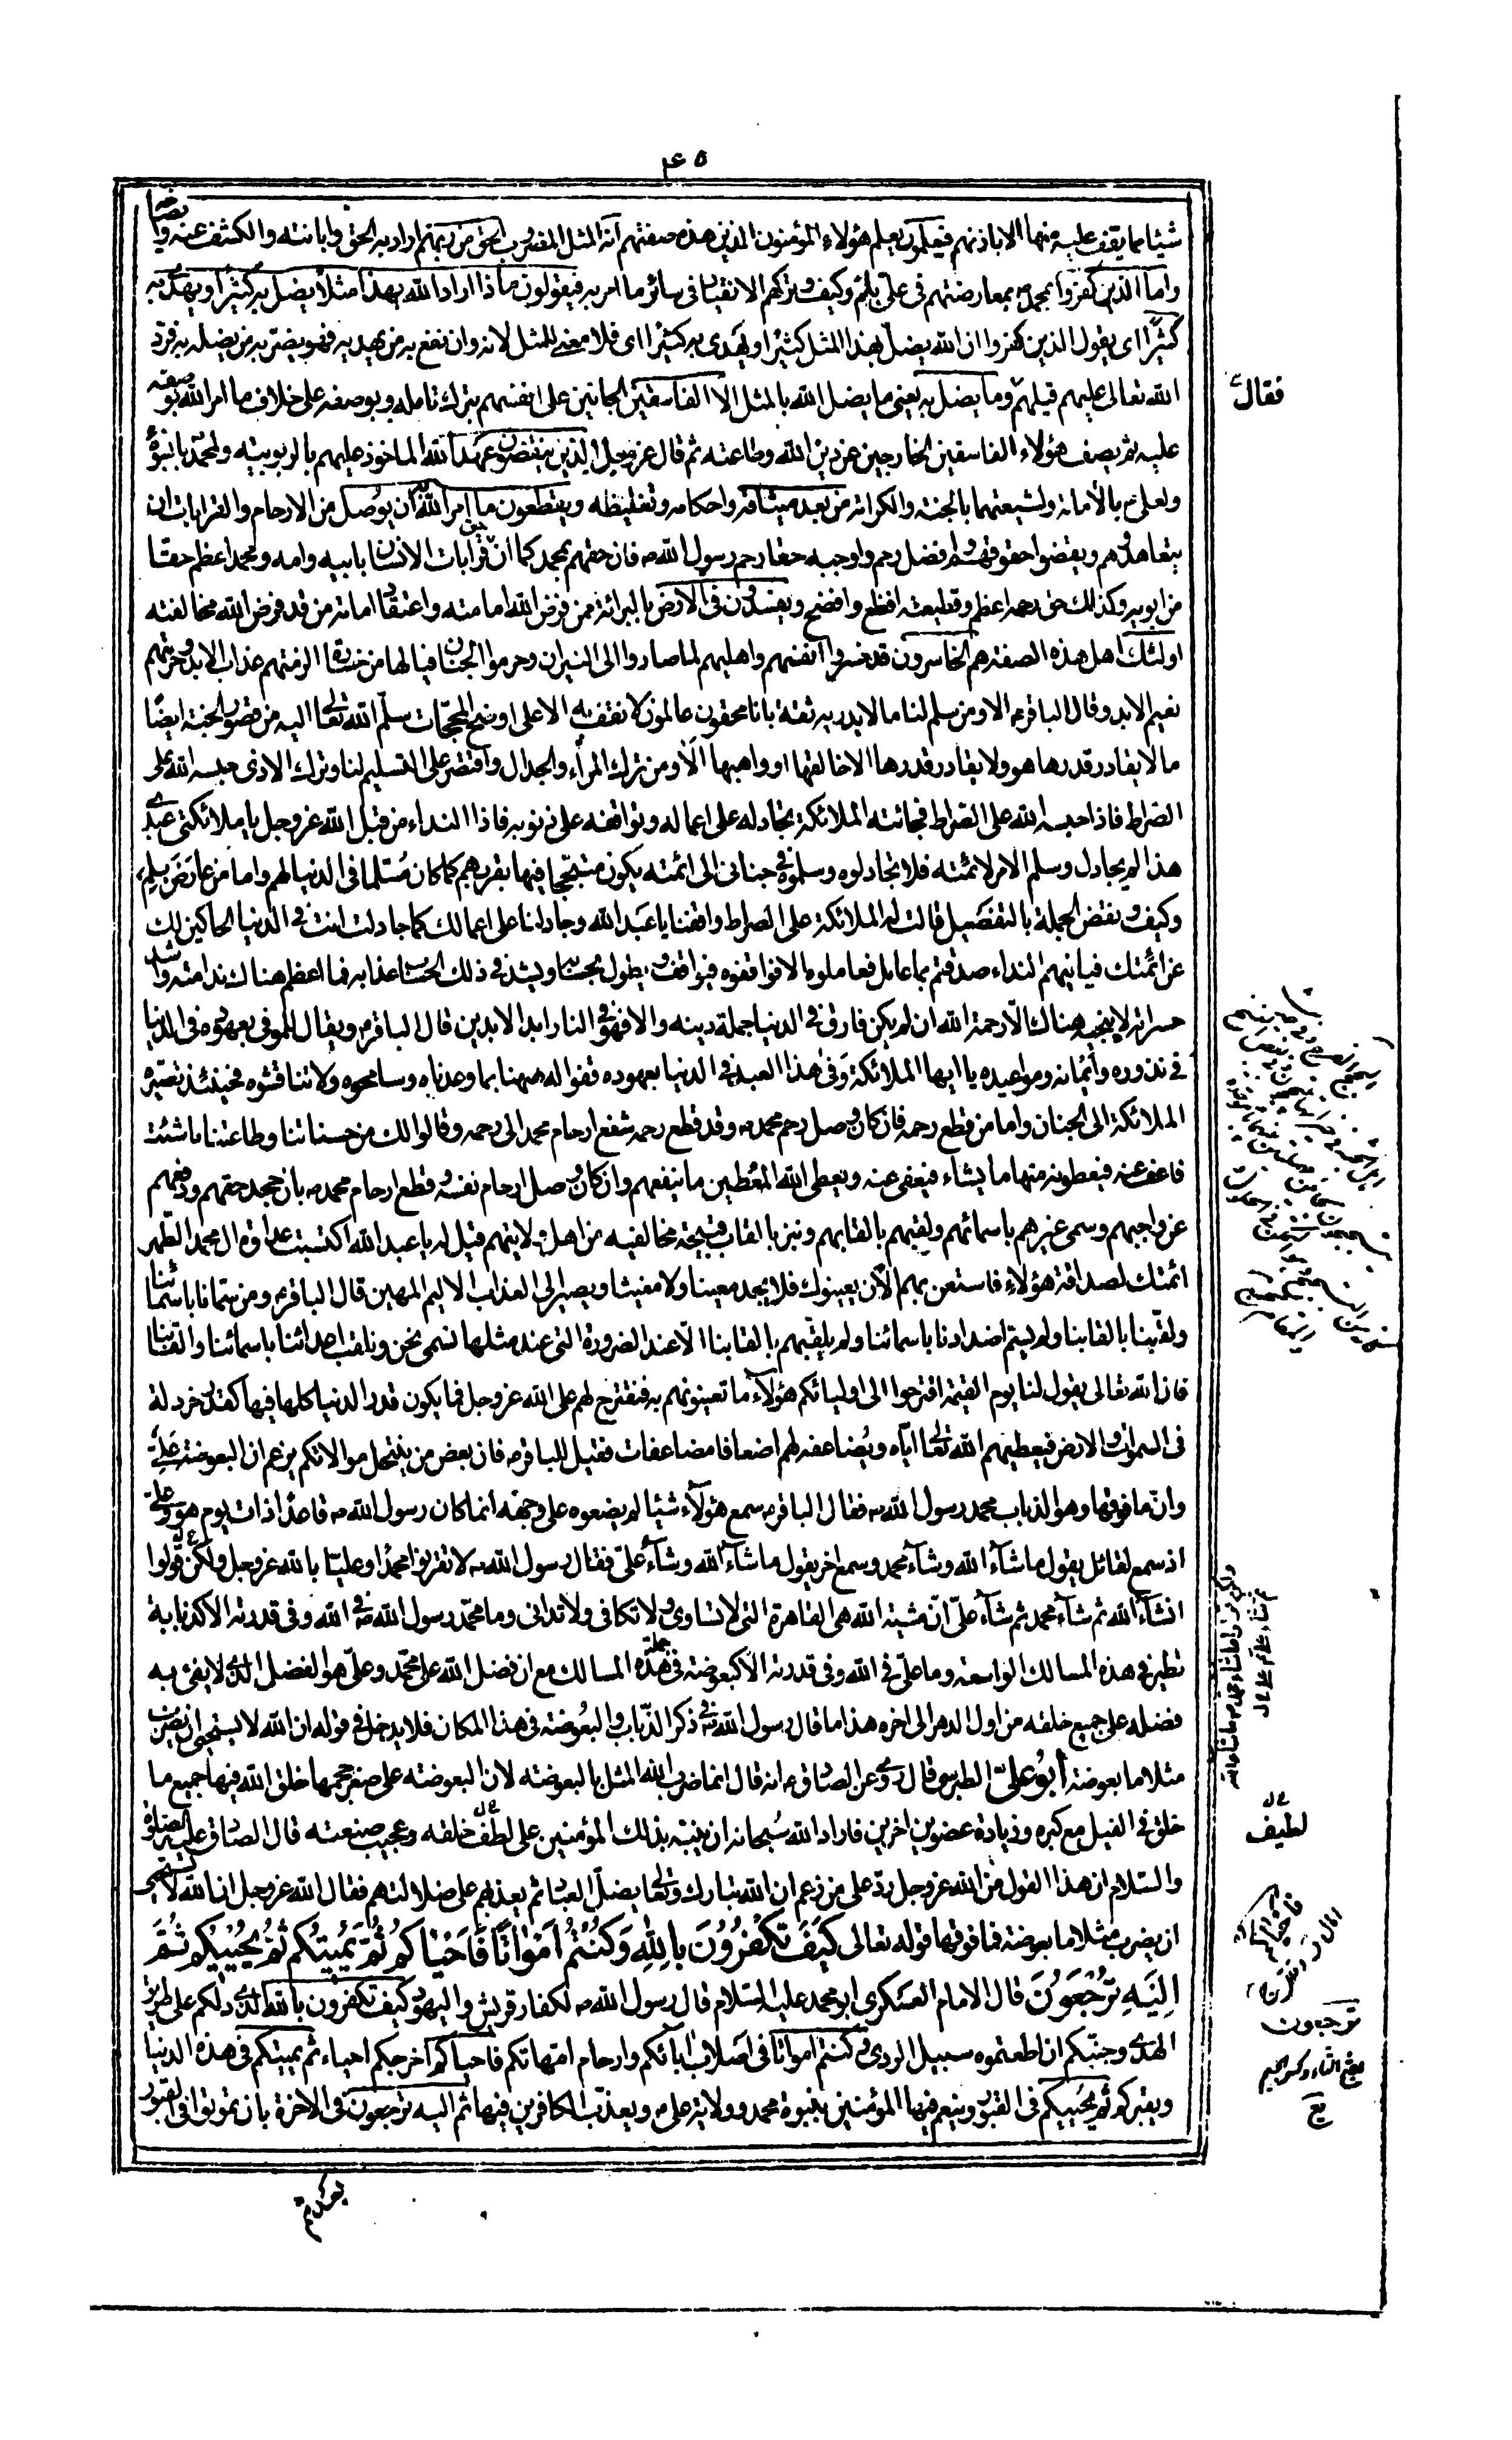 ٤٥
شيئا مما يقف عليه منها الا باذنهم فيعلمون يعلم هؤلاء المؤمنون الذين هذه صفتهم انه المثل المضروب الحق من ربهم اراد به الحق وابانته والكشف عنه وايضا
واما الذين كفروا بمحمد بمعارضتهم فى على بلم وكيف وتركهم الانقياد فى سائر ما امر به فيقولون ماذا اراد الله بهذا مثلا يضل به كثيرا ويهدى به
كثيرا اى يقول الذين كفروا ان الله يضل بهذا المثل كثيرا ويهدى به كثيرا اى فلا معنى للمثل لانه وان نفع به من يهديه فهو يضر به من يضله به فرد
الله تعالى عليهم قيلهم وما يضل به يعنى ما يضل الله بالمثل الا الفاسقين الجانين على انفسهم بترك تامله وبوصفه على خلاف ما امر الله بوصفه
عليه ثم يصف هؤلاء الفاسقين الخارجين عن دين الله وطاعته ثم قال عز وجل الذين ينقضون عهد الله الماخوذ عليهم بالربوبيته ولمحمد بالنبوة
ولعلى بالأمامة ولشيعتهما بالجنة والكرامة من بعد ميثاقه واحكامه وتغليظه ويقطعون ما امر الله به ان يوصل من الارحام والقرابات ان
يتعاهدوهم ويقضوا حقوقهم وافضل رحم واوجبه حقا رحم رسول الله فان حقهم بمحمد كما ان حق قرابات الانسان بابيه وامه ومحمد اعظم حقا
من ابويه وكذلك حق رحمه اعظم وقطيعته افظع وافضح ويفسدون فى الارض بالبرائة ممن فرض الله امامته واعتقاد امامة من قد فرض الله مخالفته
اولئك اهل هذه الصفة هم الخاسرون قد خسروا انفسهم واهليهم لما صاروا الى النيران وحرموا الجنان فيا لها من خسارة الزمتهم عذاب الابد وحرمتهم
نعيم الابد وقال الباقر الا ومن سلم لنا ما لا يدريه ثقة بانا محقون عالمون لا نقف به الا على اوضح المحجات سلم الله تعالى اليه من قصور الجنة ايضا
ما لا يقادر قدرها هو ولا يقادر قدرها الا خالقها او واهبها الا ومن ترك المراء والجدال واقتصر على التسليم لنا وترك الاذى حبسه الله على
الصراط فاذا حبسه الله على الصراط فجائته الملائكة تجادله على اعماله وتواقفه على ذنوبه فاذا النداء من قبل الله عز وجل يا ملائكتى عبدى
هذا لم يجادل وسلم الامر لائمته فلا تجادلوه وسلموه فى جنانى الى ائمته يكون متبجحا فيها بقربهم كما كان مسلما فى الدنيا لهم واما من عارض بلم
وكيف ونقض الجملة بالتفصيل قالت له الملائكة على الصراط واقفنا يا عبد الله وجادلنا على اعمالك كما جادلت انت فى الدنيا الحاكين لك
عن ائمتك فياتيهم النداء صدقتم بما عامل فعاملوه الا فواقفوه فيواقف ويطول حسابه ويشتد فى ذلك الحساب عذابه فما اعظم هناك ندامته واشد
حسراته لا ينجيه هناك الا رحمة الله ان لم يكن فارق فى الدنيا جملة دينه والا فهو فى النار ابد الابدين قال الباقر ويقال للموفى بعهوده فى الدنيا
فى نذوره وأيمانه ومواعيده يا ايها الملائكة وفى هذا العبد فى الدنيا بعهوده ففوا له هيهنا بما وعدناه وسامحوه ولا تناقشوه فحينئذ تصيره
الملائكة الى الجنان واما من قطع رحمه فان كان وصل رحم محمد وقد قطع رحمه شفع ارحام محمد الى رحمه وقالوا لك من حسناتنا وطاعتنا ما شئت
فاعف عنه فيعطونه منها ما يشاء فيعفى عنه ويعطى الله المعطين ما ينفعهم وان كان وصل ارحام نفسه وقطع ارحام محمد بان جحد حقهم ودفعهم
عن واجبهم وسمى غيرهم باسمائهم ولقبهم بالقابهم ونبز بالقاب قبيحة مخالفيه من اهل ولايتهم قيل له يا عبد الله اكتسبت عداوة ال محمد الطهر
ائمتك لصداقة هؤلاء فاستعن بهم الآن يعينوك فلا يجد معينا ولا مغيثا ويصير الى العذاب الاليم المهين قال الباقر ومن سمانا باسمائنا
ولقبنا بالقابنا ولم يسم اضدادنا باسمائنا ولم يلقبهم بالقابنا الا عند الضرورة التى عند مثلها نسمى نحن ونلقب اعدائنا باسمائنا والقابنا
فان الله تعالى يقول لنا يوم القيمة اقترحوا الى اوليائكم هؤلاء ما تعينونهم به فنقترح لهم على الله عز وجل فما يكون قدر الدنيا كلها فيها كقدر خردلة
فى السموات والارض فيعطيهم الله تعالى اياه ويضاعفه لهم اضعافا مضاعفات فقيل للباقر فان بعض من ينتحل موالاتكم يزعم ان البعوضة على
وان ما فوقها وهو الذباب محمد رسول الله فقال الباقر سمع هؤلاء شيئا لم يضعوه على وجهه انما كان رسول الله قاعدا ذات يوم هو وعلى
اذ سمع لقائل يقول ما شاء الله وشاء محمد وسمع اخر يقول ما شاء الله وشاء على فقال رسول الله لا تقرنوا محمدا وعليا بالله عز وجل ولكن قولوا
انشاء الله ثم شاء محمد ثم شاء على ان مشية الله هى القاهرة التى لا تساوى ولا تكافى ولا تدانى وما محمد رسول الله فى الله وفى قدرته الا كذبابة
تطير فى هذه المسالك الواسعة وما على فى الله وفى قدرته الا كبعوضة فى جملة هذه المسالك مع ان فضل الله على محمد وعلى هو الفضل الذى لا يفى به
فضله على جميع خلقه من اول الدهر الى اخره هذا ما قال رسول الله فى ذكر الذباب والبعوضة فى هذا المكان فلا يدخل فى قوله ان الله لا يستحيى ان يضرب
مثلا ما بعوضة أبو على الطبرسى قال روى عن الصادق انه قال انما ضرب الله المثل بالبعوضة لان البعوضة على صغر حجمها خلق الله فيها جميع ما
خلق فى الفيل مع كبره وزيادة عضوين اخرين فاراد الله سبحانه ان ينبه بذلك المؤمنين على لطف خلقه وعجيب صنعته قال الصادق عليه الصلوة
والسلام ان هذا القول من الله عز وجل رد على من زعم ان الله تبارك وتعالى يضل العباد ثم يعذبهم على ضلالتهم فقال الله عز وجل ان الله لا يستحيى
ان يضرب مثلا ما بعوضة فما فوقها قوله تعالى كيف تكفرون بالله وكنتم امواتا فاحياكم ثم يميتكم ثم يحييكم ثم
اليه ترجعون قال الامام العسكرى ابو محمد عليه السلام قال رسول الله لكفار قريش واليهود كيف تكفرون بالله الذى دلكم على طريق
الهدى وجنبكم ان اطعتموه سبيل الردى وكنتم امواتا فى اصلاب ابائكم وارحام امهاتكم فاحياكم اخرجكم احياء ثم يميتكم فى هذه الدنيا
ويقبركم ثم يحييكم فى القبور وينعم فيها المؤمنين بنبوة محمد وولاية على ويعذب الكافرين فيها ثم اليه ترجعون فى الاخرة بان تموتوا فى القبور
فقال
لطيف
ترجعون
بفتح التاء وكسر الجيم